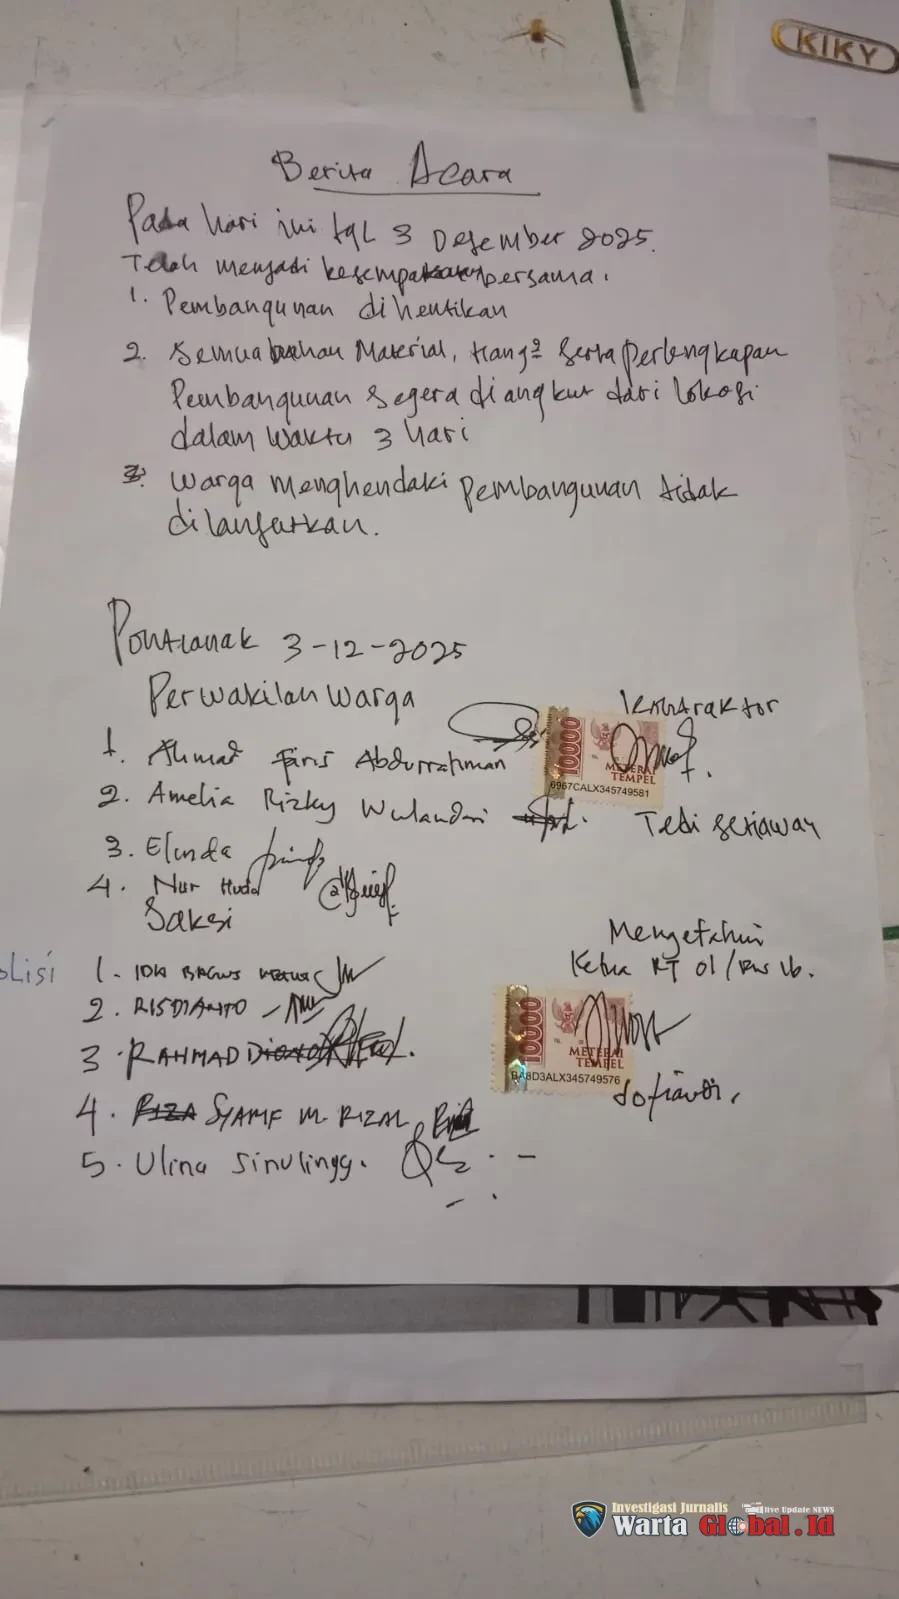 KIKY
Berita Acara
Pada hari ini tgl 3 Desember 2025.
Telah menjadi kesempatan bersama.
1. Pembangunan dihentikan
2. Semua bahan Material, tiang2 serta perlengkapan
Pembangunan segera diangkut dari lokasi
dalam waktu 3 hari
3. Warga menghendaki pembangunan tidak
dilanjutkan.
Pontianak 3-12-2025
Perwakilan Warga
Kontraktor
1. Ahmad Faris Abdurrahman
10000
METERAI
TEMPEL
6967CALX345749581
2. Amelia Rizky Wulandari
Tedi Setiawan
3. Elinda
4. Nur Huda
Saksi
Mengetahui
Ketua RT 01/RW 16.
OLISI
1. IDA BAGUS
2. RISDIANTO
3. RAHMAD
10000
METERAI
TEMPEL
BA8D3ALX345749576
Sofiandi.
4. SYARIF M. RIZAL
5. Ulina Sinulingg.
Investigasi Jurnalis
live Update NEWS
Warta Global.Id